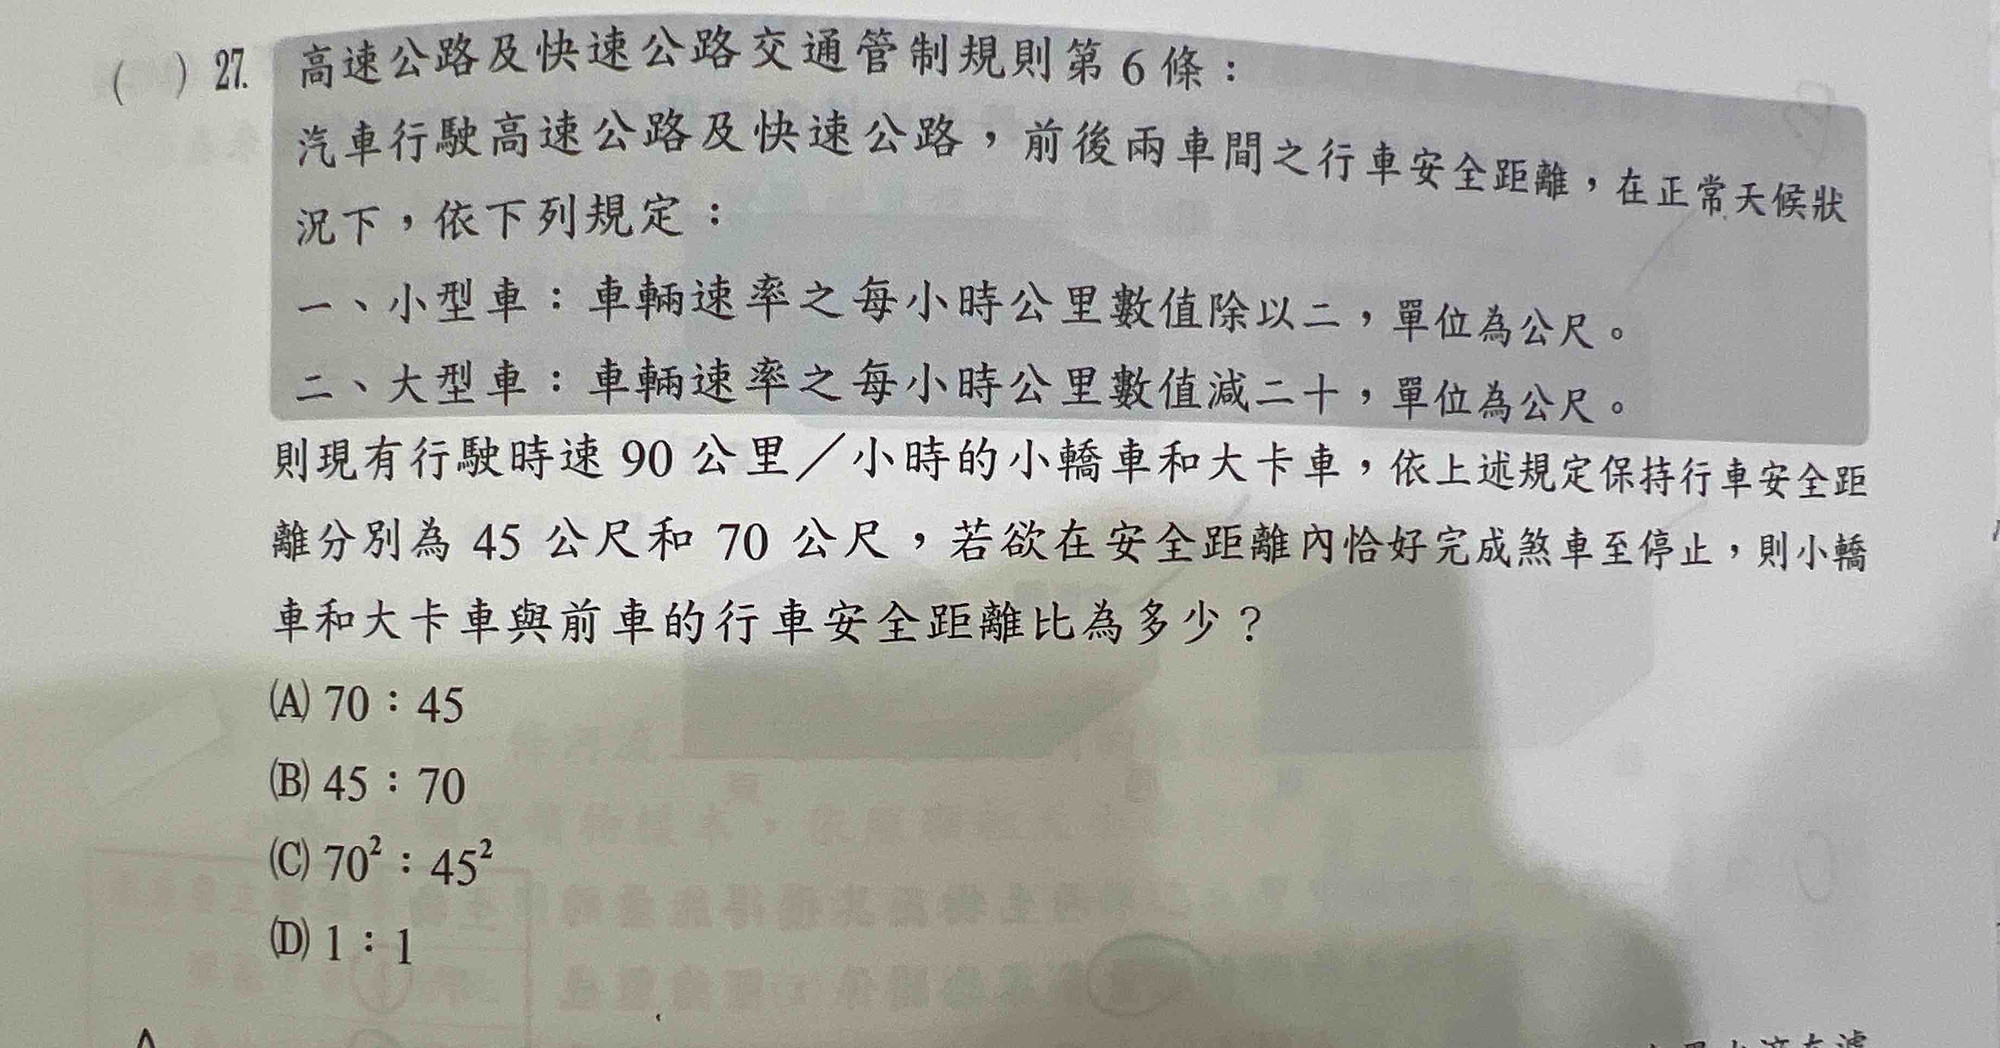 ( ) 27. 高速公路及快速公路交通管制規則第 6 條：
汽車行駛高速公路及快速公路，前後兩車間之行車安全距離，在正常天候狀
況下，依下列規定：
一、小型車：車輛速率之每小時公里數值除以二，單位為公尺。
二、大型車：車輛速率之每小時公里數值減二十，單位為公尺。
則現有行駛時速 90 公里／小時的小轎車和大卡車，依上述規定保持行車安全距
離分別為 45 公尺和 70 公尺，若欲在安全距離內恰好完成煞車至停止，則小轎
車和大卡車與前車的行車安全距離比為多少？
(A) 70：45
(B) 45：70
(C) 70²：45²
(D) 1：1